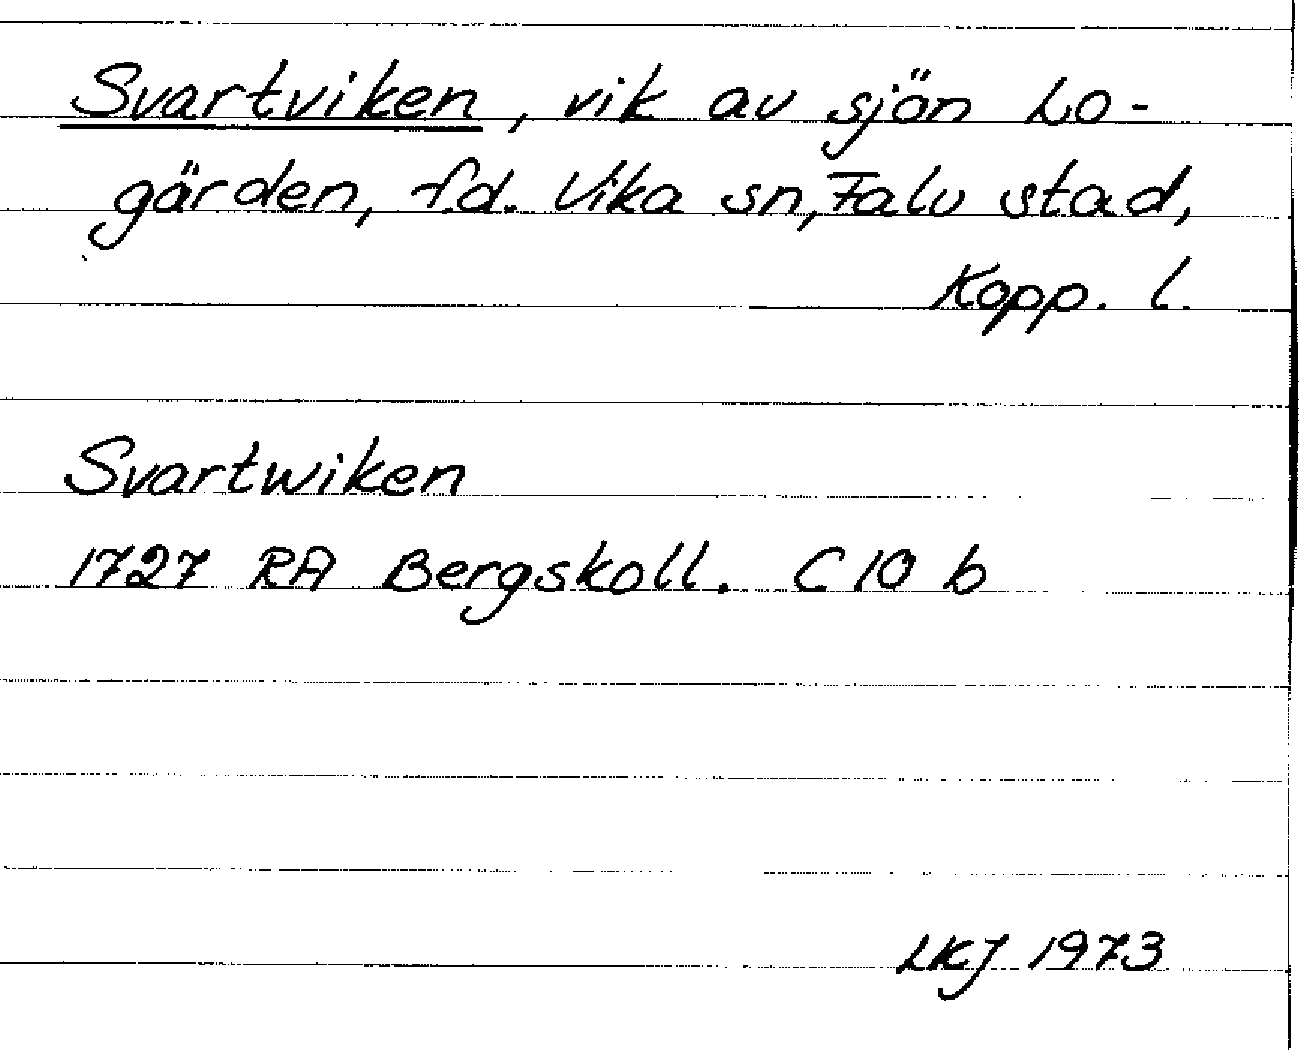 Svartviken, vik av sjön Lo-
gärden, f.d. Vika sn, Falu stad,
Kopp. l.
Svartwiken
1727 RA Bergskoll. C 10 b
LKJ 1973